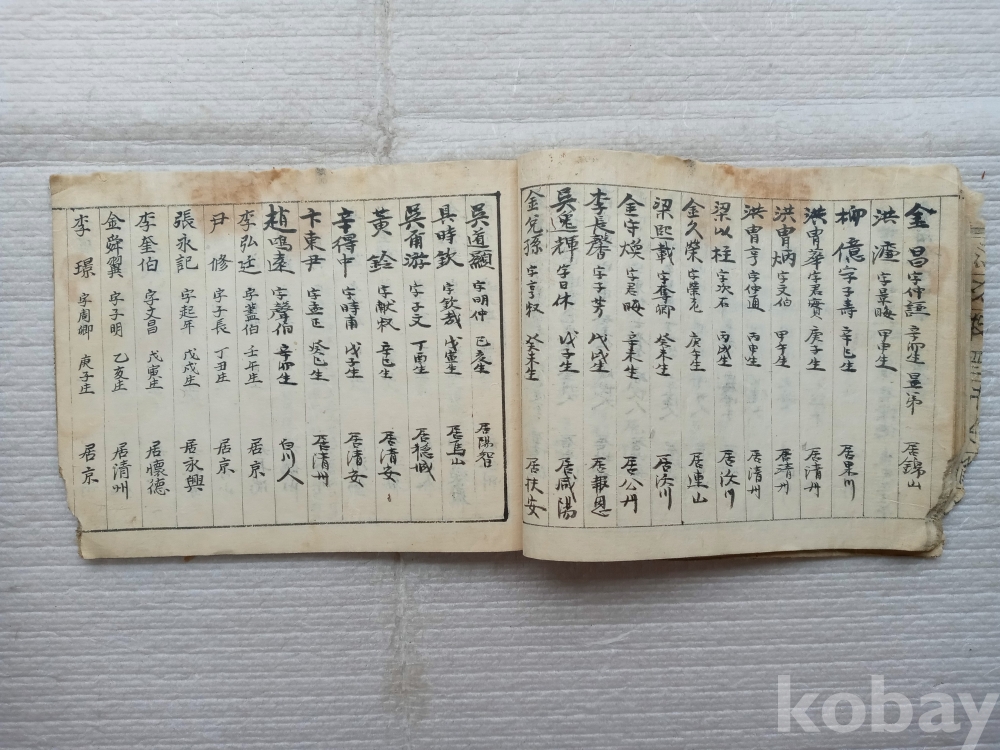 金昌 字仲誼 辛酉生 居錦山
洪濩 字景晦 甲申生
柳億 字子壽 辛巳生 居果川
洪冑華 字君實 庚子生 居清州
洪冑炳 字文伯 甲午生 居清州
洪冑亨 字仲通 丙申生 居清州
梁以柱 字次石 丙戌生 居汶川
金久榮 字榮老 庚午生 居連山
梁熙載 字奪卿 癸未生 居汶川
金守煥 字君晦 辛未生 居公州
李長馨 字子芳 戊戌生 居報恩
吳逸輝 字日休 戊子生 居咸陽
金兌孫 字亨叔 癸未生 居扶安
吳道顯 字明仲 己亥生 居陽智
具時欽 字欽哉 戊寅生 居馬山
吳甫游 字子文 丁酉生 居穩城
黃銓 字獻叔 辛巳生 居清安
辛得中 字時甫 戊子生 居清安
卞東尹 字孟正 癸巳生 居清州
趙鳴遠 字聲伯 辛酉生 白川人
李弘廷 字蓋伯 壬午生 居京
尹修 字子長 丁丑生 居京
張永記 字起年 戊戌生 居永興
李奎伯 字文昌 戊寅生 居懷德
金舜翼 字子明 乙亥生 居清州
李璟 字周卿 庚子生 居京
kobay